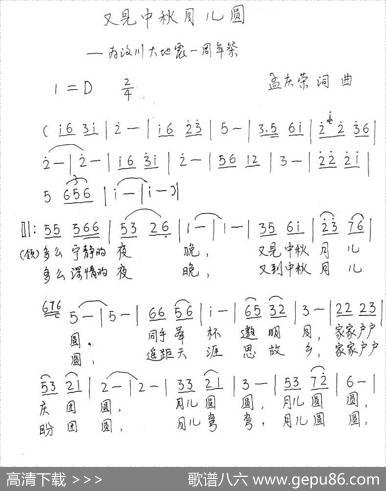 又见中秋月儿圆
——为汶川大地震一周年祭
1=D 2/4 孟庆荣 词 曲
( i6 3i | 2 - | i6 23 | 5 - | 3.5 6i | 2 2 36 |
2 - | 2 - | i6 3i | 2 - | 56 12 | 3 - | 22 2i |
5 656 | i - | i - ) |
||: 55 566 | 53 26 | 1 - | 1 - | 35 6i | 23 76 |
多么 宁静的 夜 晚, 又见中秋 月 儿
多么 深情的 夜 晚, 又到中秋 月 儿
676
5 - | 5 - | 66 56 | i - | 65 32 | 3 - | 22 23 |
圆。 同手 举 杯 邀 明 月, 家家户户
圆, 追距天 涯 思 故 乡, 家家户户
53 21 | 2 - | 2 - | 33 21 | 3 - | 53 72 | 6 - |
庆 团 圆, 月儿 圆 圆, 月儿 圆 圆,
盼 团 圆, 月儿 弯 弯, 月儿 圆 圆,
高清下载 >>> 歌谱八六 www.gepu86.com